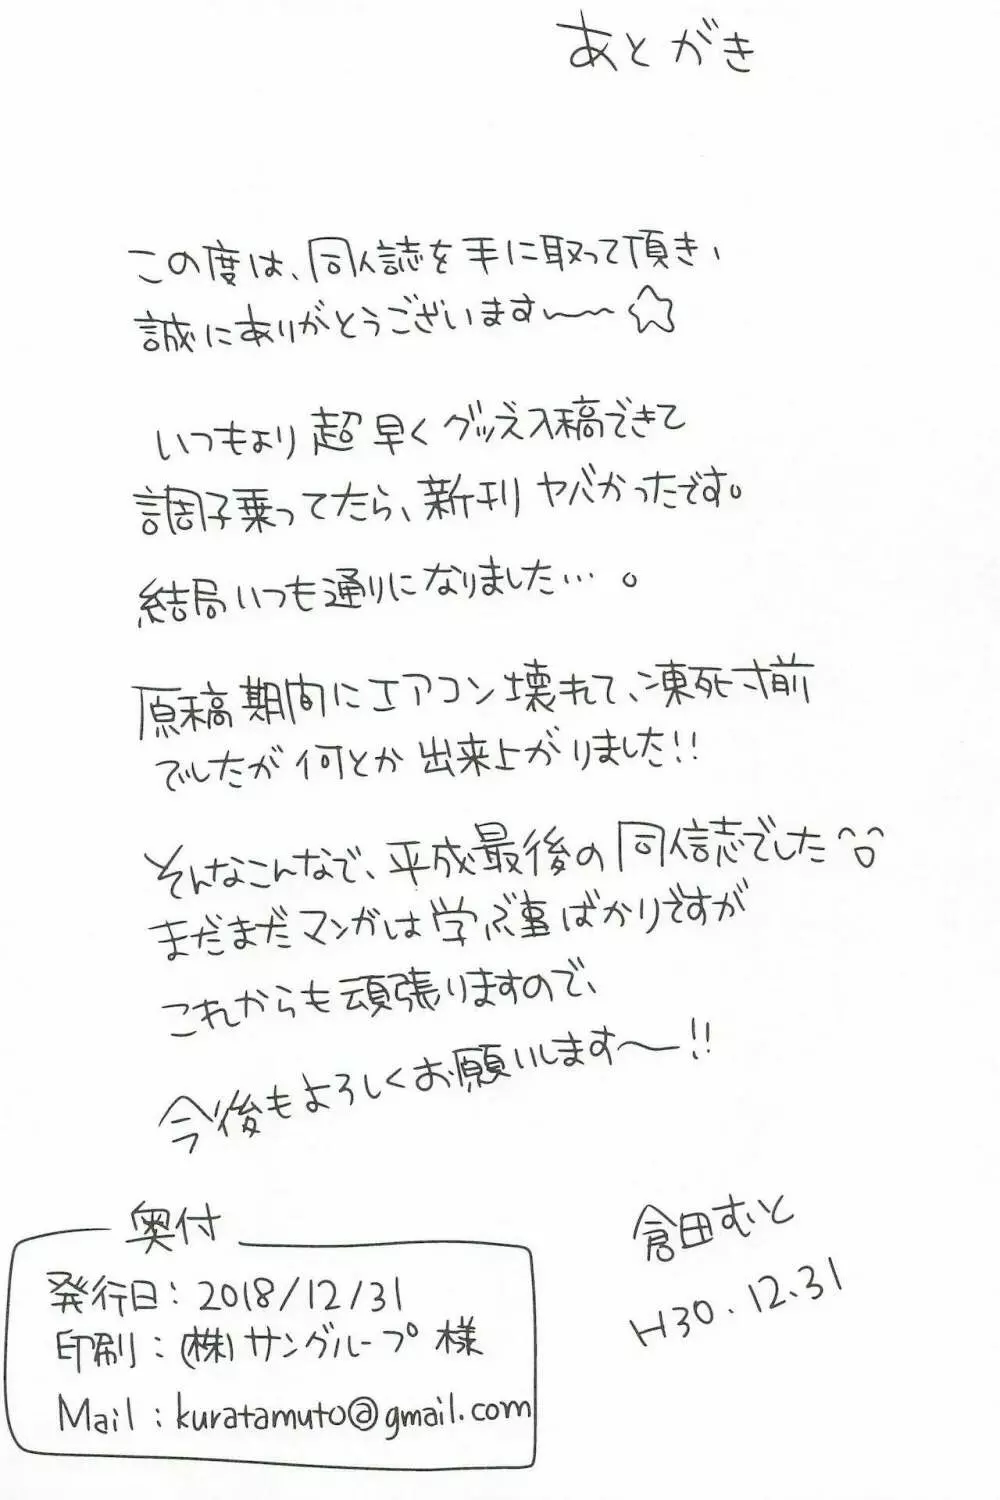 あとがき
この度は、同人誌を手に取って頂き、
誠にありがとうございます〜〜☆
いつもより超早くグッズ入稿できて
調子乗ってたら、新刊ヤバかったです。
結局いつも通りになりました…。
原稿期間にエアコン壊れて、凍死寸前
でしたが何とか出来上がりました!!
そんなこんなで、平成最後の同信志でした
まだまだマンガは学ぶ事ばかりですが
これからも頑張りますので、
今後もよろしくお願いします〜!!
倉田むと
H30.12.31
奥付
発行日:2018/12/31
印刷:(株)サングループ様
Mail:kuratamuto@gmail.com